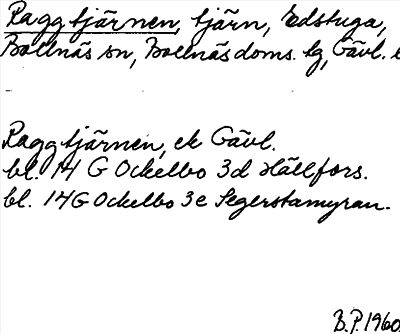 Raggtjärnen, tjärn, Edstuga,
Bollnäs sn, Bollnäs doms. tg, Gävl. l
Raggtjärnen, ek Gävl.
bl. 14 G Ockelbo 3d Hällfors.
bl. 14G Ockelbo 3e Segerstamyran.
B.P. 1960.